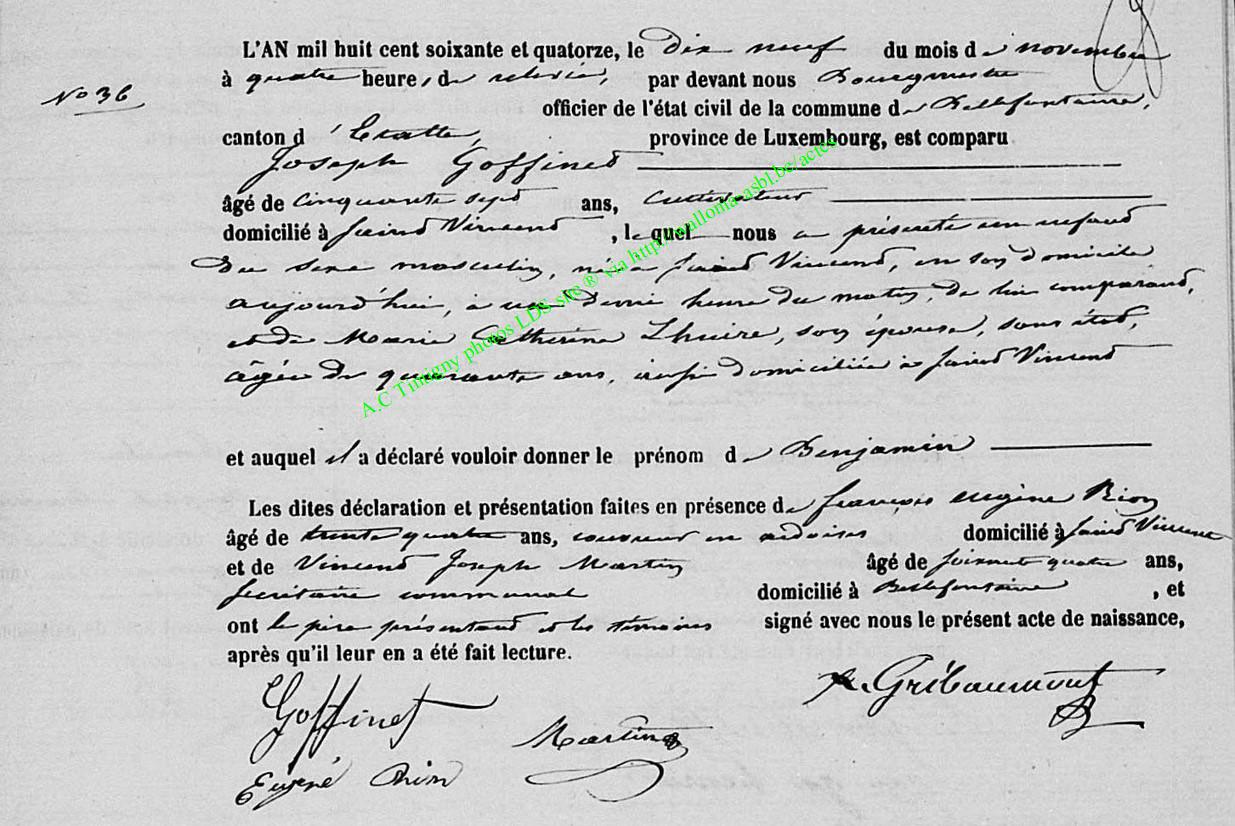 L'AN mil huit cent soixante et quatorze, le dix neuf du mois de novembre
à quatre heures de relevée, par devant nous Bourgmestre
No 36
officier de l'état civil de la commune de Bellefontaine,
canton d'Etalle, province de Luxembourg, est comparu
Joseph Goffinet
âgé de cinquante sept ans, cultivateur
domicilié à Saint Vincent, lequel nous a présenté un enfant
du sexe masculin, né à Saint Vincent, en son domicile
aujourd'hui, à une demi heure du matin, de lui comparant,
et de Marie Catherine Lhuire, son épouse, sans état,
âgée de quarante ans, aussi domiciliée à Saint Vincent
et auquel il a déclaré vouloir donner le prénom de Benjamin
Les dites déclaration et présentation faites en présence de françois eugène Rion
âgé de trente quatre ans, couvreur en ardoises domicilié à Saint Vincent
et de Vincent Joseph Martin âgé de soixante quatre ans,
secrétaire communal domicilié à Bellefontaine, et
ont le père présentant et les témoins signé avec nous le présent acte de naissance,
après qu'il leur en a été fait lecture.
Goffinet Martin Gribaumont
Eugène Rion
A.C Tintigny photos LDS site ® via http://malloma-asbl.be/actes